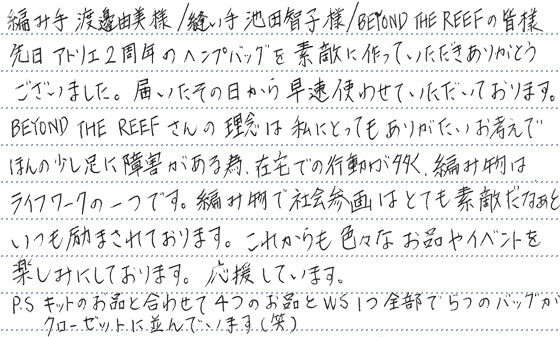 編み手 渡邊由美様/縫い手 池田智子様/BEYOND THE REEFの皆様
先日 アトリエ2周年のヘンプバッグを 素敵に作っていただきありがとう
ございました。届いたその日から 早速使わせていただいております。
BEYOND THE REEFさんの 理念は 私にとっても ありがたいお考えで
ほんの少し足に障害がある為、在宅での行動が多く、編み物は
ライフワークの一つです。編み物で社会参画はとても素敵だなぁと
いつも励まされております。これからも 色々な お品やイベントを
楽しみにしております。応援しています。
P.S キットのお品と合わせて 4つのお品とWS1つ全部で5つのバッグが
クローゼットに並んでいます(笑)